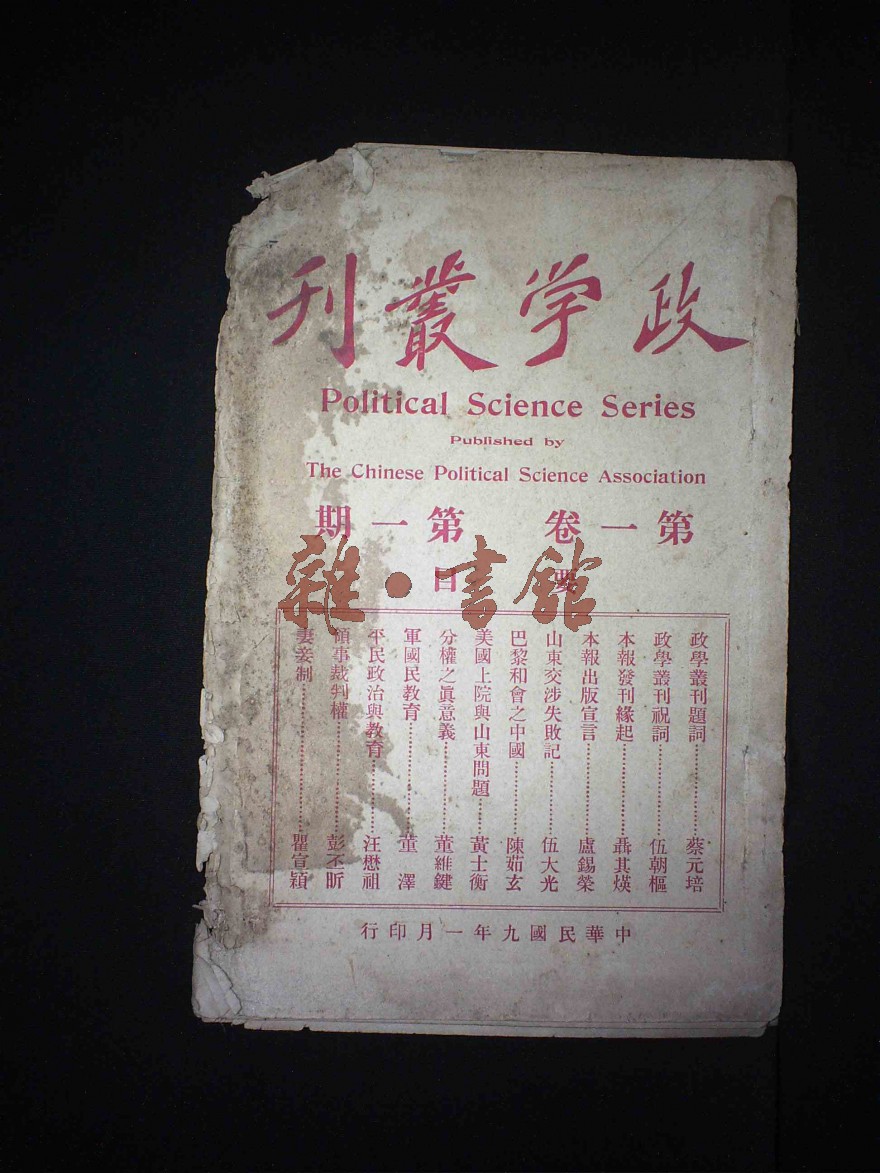 政学叢刊
Political Science Series
Published by
The Chinese Political Science Association
第一卷 第一期
要目
雜·書館
政學叢刊題詞…………蔡元培
政學叢刊祝詞…………伍朝樞
本報發刊緣起…………聶其煐
本報出版宣言…………盧錫榮
山東交涉失敗記…………伍大光
巴黎和會之中國…………陳茹玄
美國上院與山東問題……黃士衡
分權之眞意義…………董維鍵
軍國民教育…………董澤
平民政治與教育…………汪懋祖
領事裁判權…………彭丕昕
妻妾制…………瞿宣穎
中華民國九年一月印行